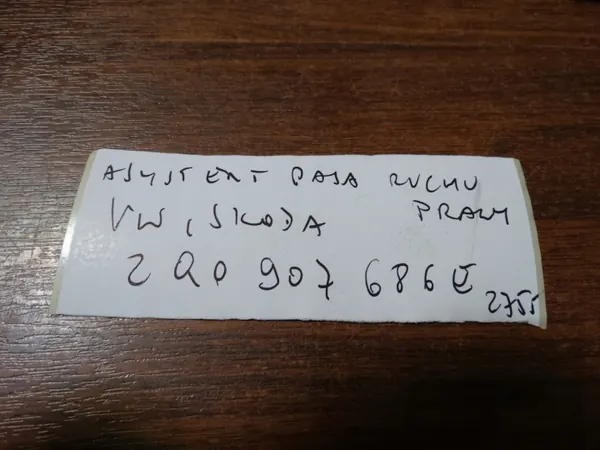 ASYSTENT PASA RUCHU
VW, SKODA PRAWY
2Q0 907 686E
2755